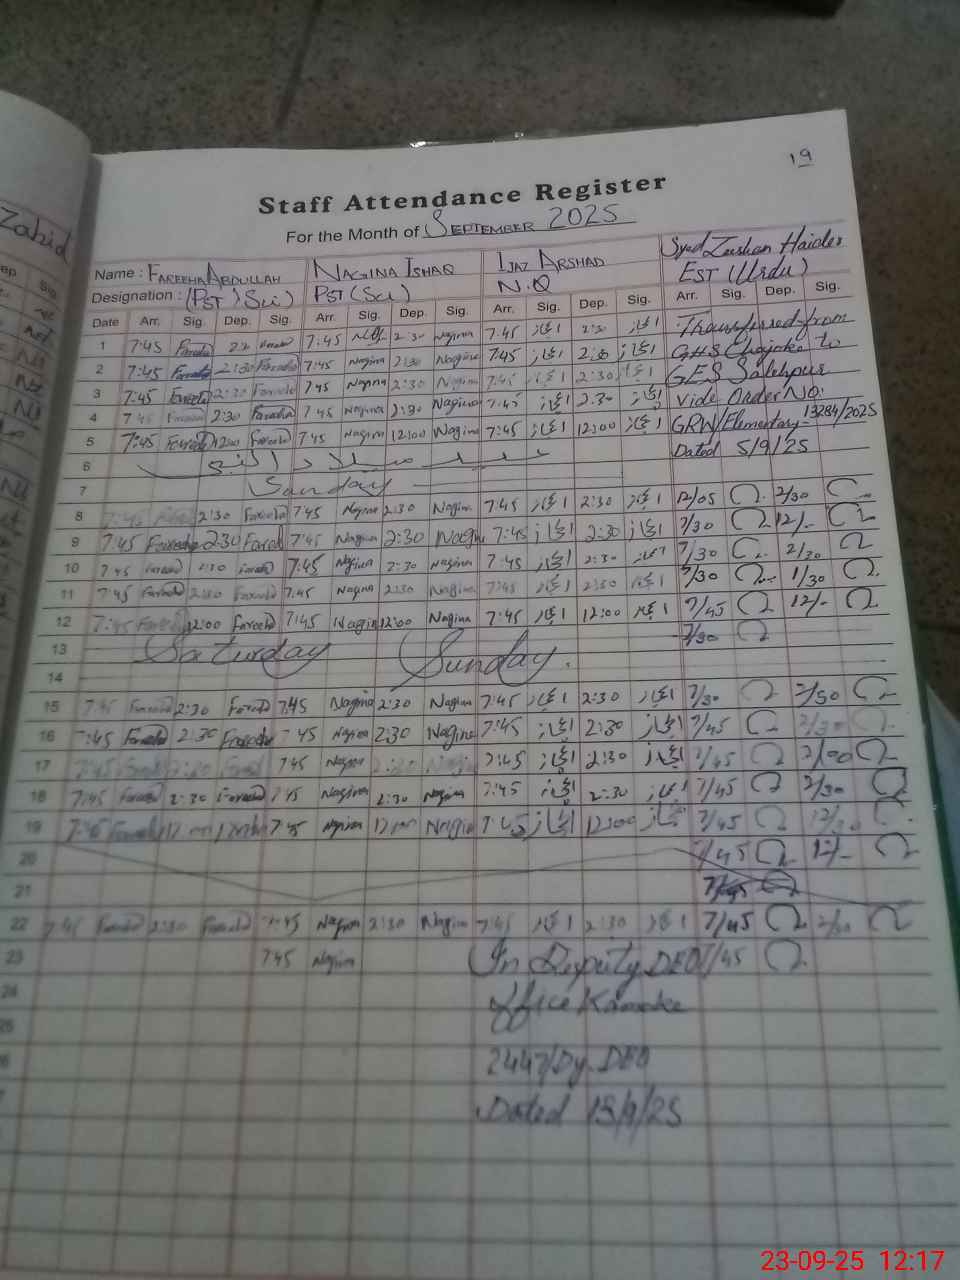 Zahid
19
Staff Attendance Register
For the Month of SEPTEMBER 2025
Name : FAREEHA ABDULLAH NAGINA ISHAQ IJAZ ARSHAD Syed Zeeshan Haider
Designation : (PST) Sci) PST (Sci) N.Q EST (Urdu)
Date Arr. Sig. Dep. Sig. Arr. Sig. Dep. Sig. Arr. Sig. Dep. Sig. Arr. Sig. Dep. Sig.
1 7:45 Fareeha Fareeha 7:45 2:30 Nagina 7:45 اعجاز 2:30 اعجاز Transferred from
2 7:45 Fareeha 2:30 Fareeha 7:45 Nagina 2:30 Nagina 7:45 اعجاز 2:30 اعجاز GHS to
3 7:45 Fareeha 2:30 Fareeha 7:45 Nagina 2:30 Nagina 7:45 اعجاز 2:30 اعجاز GES Salehpur
4 7:45 Fareeha 2:30 Fareeha 7:45 Nagina 2:30 Nagina 7:45 اعجاز 2:30 اعجاز Vide Order No.
5 7:45 Fareeha 12:00 Fareeha 7:45 Nagina 12:00 Nagina 7:45 اعجاز 12:00 اعجاز GRW/Elementary-13284/2025
6 عید میلاد النبی Dated 5/9/25
7 Sunday
8 7:45 2:30 Fareeha 7:45 Nagina 2:30 Nagina 7:45 اعجاز 2:30 اعجاز 12/05 2/30
9 7:45 Fareeha 2:30 Fareeha 7:45 Nagina 2:30 Nagina 7:45 اعجاز 2:30 اعجاز 7/30 12/-
10 7:45 Fareeha 2:30 Fareeha 7:45 Nagina 2:30 Nagina 7:45 اعجاز 2:30 اعجاز 7/30 2/30
11 7:45 Fareeha 2:30 Fareeha 7:45 Nagina 2:30 Nagina 7:45 اعجاز 2:30 اعجاز 7/30 1/30
12 7:45 Fareeha 12:00 Fareeha 7:45 Nagina 12:00 Nagina 7:45 اعجاز 12:00 اعجاز 7/45 12/-
13 Saturday Sunday. 7/30
14
15 7:45 Fareeha 2:30 Fareeha 7:45 Nagina 2:30 Nagina 7:45 اعجاز 2:30 اعجاز 7/30 2/30
16 7:45 Fareeha 2:30 Fareeha 7:45 Nagina 2:30 Nagina 7:45 اعجاز 2:30 اعجاز 7/45 2/30
17 7:45 2:30 7:45 Nagina 2:30 Nagina 7:45 اعجاز 2:30 اعجاز 7/45
18 7:45 Fareeha 2:30 Fareeha 7:45 Nagina 2:30 Nagina 7:45 اعجاز 2:30 اعجاز 7/45 2/30
19 7:45 Fareeha 7:45 Nagina Nagina 7:45 اعجاز 12:00 اعجاز 7/45
20 7/45 12/-
21
22 7:45 Fareeha 2:30 Fareeha 7:45 Nagina 2:30 Nagina 7:45 اعجاز 2:30 اعجاز 7/45 2/30
23 7:45 Nagina In Deputy DEO 7/45
24 Office Kamoke
2447/Dy. DEO
Dated 13/9/25
23-09-25 12:17